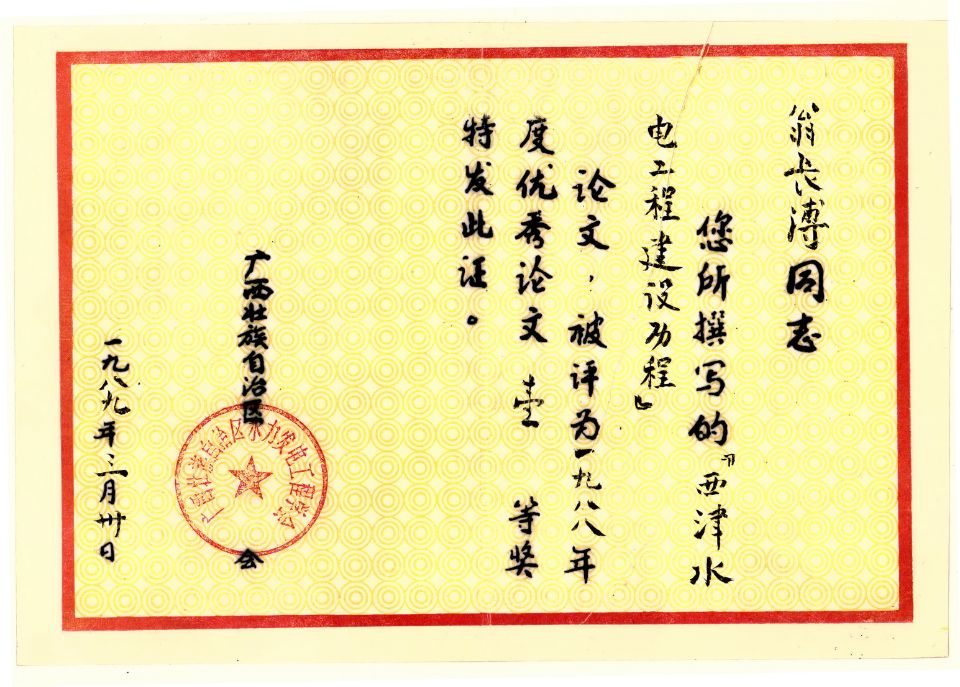 翁长溥同志
您所撰写的『西津水
电工程建设功程』
论文，被评为一九八八年
度优秀论文 壹 等奖
特发此证。
广西壮族自治区
广西壮族自治区水力发电工程学会
会
一九八九年三月卅日